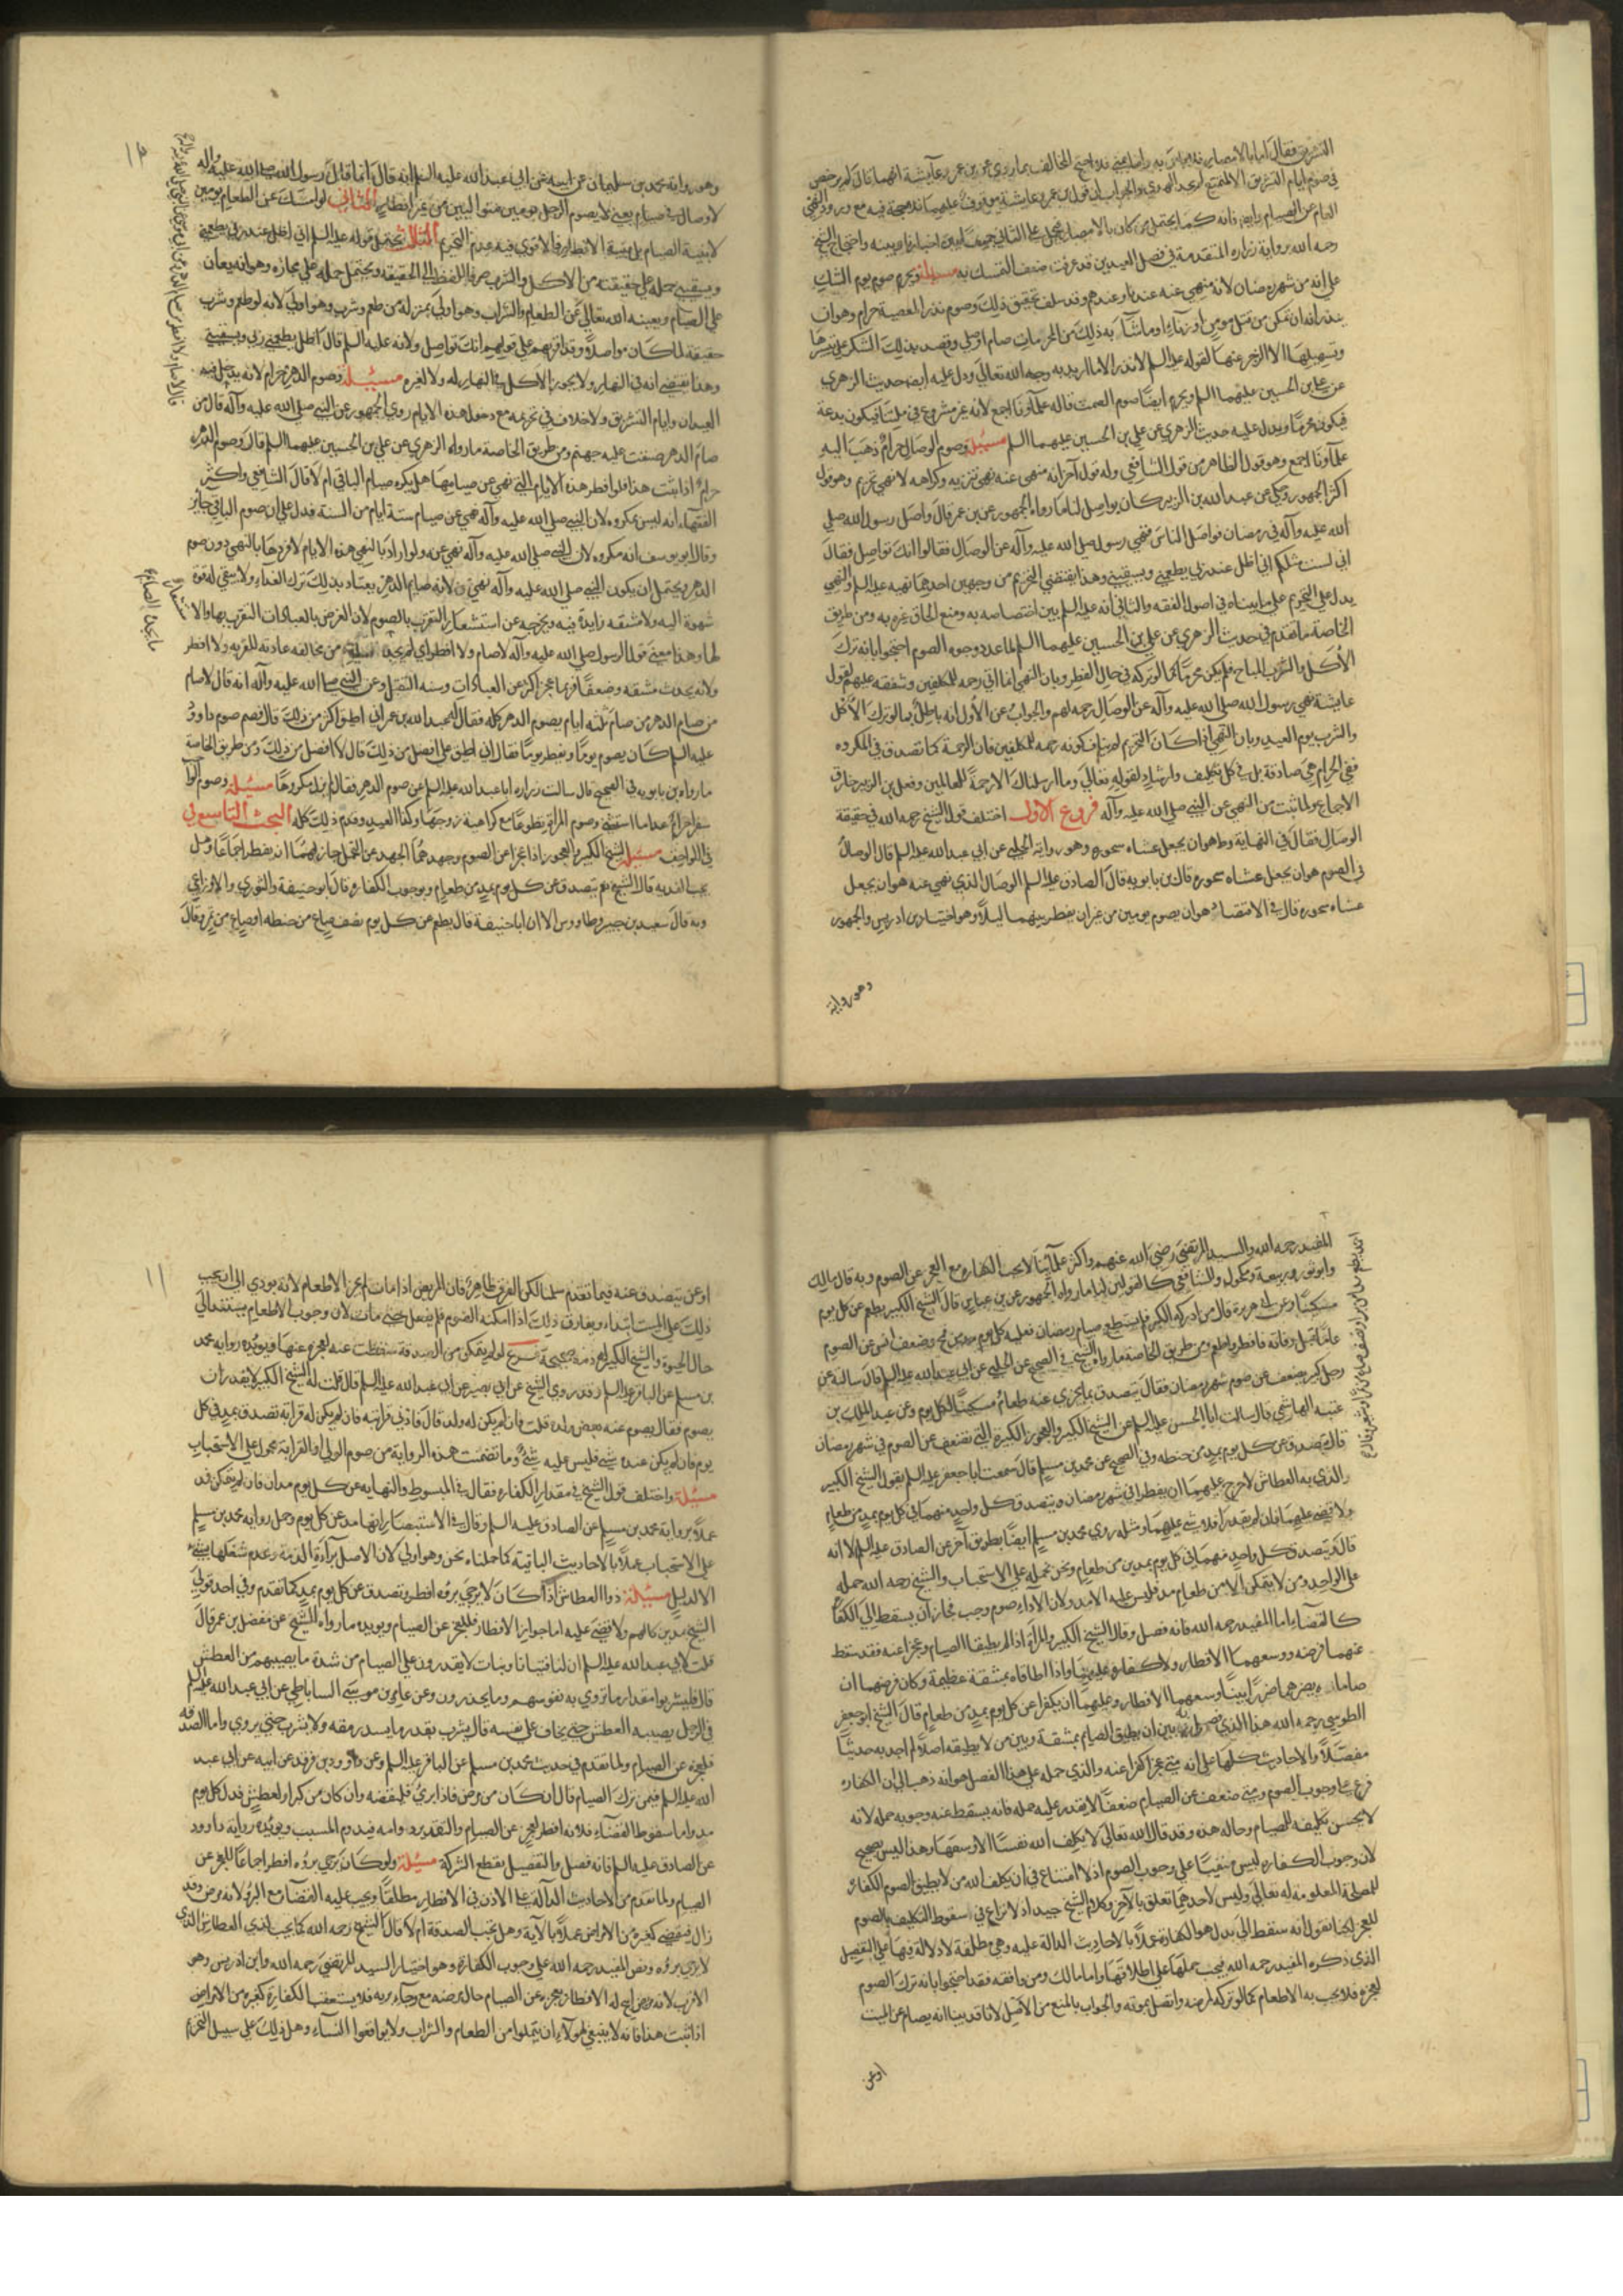 التشريق فقال اما بالامصار فلا باس به واما بمنى فلا واحتج المخالف بما روي عن بن عمر وعايشة انهما قالا لم يرخص
في صوم ايام التشريق الا لمتمتع لم يجد الهدي والجواب ان قول بن عمر وعايشة موقوف عليهما فلا حجة فيه مع ورود النهي
العام عن الصيام وايضا فانه كما يحتمل من كان بالامصار فيحمل على الثاني جمعا بين اخبارنا وبينه واحتجاج الشيخ
رحمه الله برواية زراره المتقدمة في فصل العيدين قد عرفت ضعف التمسك به مسئلة ويحرم صوم يوم الشك
على انه من شهر رمضان لانه منهي عنه عندنا وعندهم وقد سلف تحقيق ذلك وصوم نذر المعصية حرام وهو ان
ينذر انه ان تمكن من قتل مومن او زناء او ما شابه ذلك من المحرمات صام او صلى وقصد بذلك الشكر على تيسرها
وتسهيلها لا الزجر عنها لقوله عليه السلم لا نذر الا ما اريد به وجه الله تعالى ودل عليه ايضا حديث الزهري
عن علي بن الحسين عليهما السلم ويحرم ايضا صوم الصمت قاله علماؤنا اجمع لانه غير مشروع في ملتنا فيكون بدعة
فيكون محرما ويدل عليه حديث الزهري عن علي بن الحسين عليهما السلم مسئلة وصوم الوصال حرام ذهب اليه
علماؤنا اجمع وهو قول الظاهر من قول الشافعي وله قول آخر انه منهي عنه نهي تنزيه وكراهه لا نهي تحريم وهو قول
اكثر الجمهور وحكي عن عبد الله بن الزبير كان يواصل لنا ما رواه الجمهور عن بن عمر قال واصل رسول الله صلى
الله عليه وآله في رمضان فواصل الناس فنهى رسول صلى الله عليه وآله عن الوصال فقالوا انك تواصل فقال
اني لست مثلكم اني اظل عند ربي يطعمني ويسقيني وهذا يقتضي التحريم من وجهين احدهما نهيه عليه السلم والنهي
يدل على التحريم على ما بيناه في اصول الفقه والثاني انه عليه السلم بين اختصاصه به ومنع الحاق غيره به ومن طريق
الخاصة ما تقدم في حديث الزهري عن علي بن الحسين عليهما السلم لما عدد وجوه الصوم احتجوا بانه ترك
الاكل والشرب المباح فلم يكن محرما كما لو تركه في حال الفطر وبان النهي انما اتي رحمه للمكلفين وشفقه عليهم لقول
عايشة نهى رسول الله صلى الله عليه وآله عن الوصال رحمه لهم والجواب عن الاول انه باطل بما لو ترك الاكل
والشرب يوم العيد وبان النهي اذا كان للتحريم لم يناف كونه رحمه للمكلفين فان الرحمة كما تصدق في المكروه
ففي الحرام هي صادقة بل في كل تكليف وارشاد لقوله تعالى وما ارسلناك الا رحمة للعالمين وفعل بن الزبير خارق
الاجماع ولما ثبت من النهي عن النبي صلى الله عليه وآله فروع الاول اختلف قول الشيخ رحمه الله في حقيقة
الوصال فقال في النهاية وط هو ان يجعل عشاه سحوره وهو رواية الحلبي عن ابي عبد الله عليه السلم قال الوصال
في الصوم هو ان يجعل عشاه سحوره قال بن بابويه قال الصادق عليه السلم الوصال الذي نهى عنه هو ان يجعل
عشاه سحوره قال في الاقتصاد هو ان يصوم يومين من غير ان يفطر بينهما ليلا وهو اختيار بن ادريس والجمهور
وهو رواية
١٠
وهو رواية محمد بن سليمان عن ابيه عن ابي عبد الله عليه السلم انه قال انما قال رسول الله صلى الله عليه وآله
لا وصال في صيام يعني لا يصوم الرجل يومين متواليين من غير افطار الثاني لو امسك عن الطعام يومين
لا بنية الصيام بل بنية الافطار فالاقوى فيه عدم التحريم الثالث يحتمل قوله عليه السلم اني اظل عند ربي يطعمني
ويسقيني حمله على حقيقته من الاكل والشرب صرفا للفظ الى الحقيقة ويحتمل حمله على مجازه وهو انه يعان
على الصيام ويعينه الله تعالى عن الطعام والشراب وهو اولى بمنزلة من طعم وشرب وهو اولى لانه لو طعم وشرب
حقيقة لما كان مواصلا وقد اقرهم على قولهم انك تواصل ولانه عليه السلم قال اظل يطعمني ربي ويسقيني
وهذا يقتضي انه في النهار ولا يجوز الاكل في النهار له ولا لغيره مسئلة وصوم الدهر حرام لانه يدخل فيه
العيدان وايام التشريق ولا خلاف في تحريمه مع دخول هذه الايام روي الجمهور عن النبي صلى الله عليه وآله قال من
صام الدهر ضيقت عليه جهنم ومن طريق الخاصة ما رواه الزهري عن علي بن الحسين عليهما السلم قال وصوم الدهر
حرام اذا ثبت هذا فلو افطر هذه الايام التي نهي عن صيامها هل يكره صيام الباقي ام لا قال الشافعي واكثر
الفقهاء انه ليس بمكروه لان النبي صلى الله عليه وآله نهى عن صيام ستة ايام من السنة فدل على ان صوم الباقي جايز
وقال ابو يوسف انه مكروه لان النبي صلى الله عليه وآله نهى عنه ولو اراد بالنهي هذه الايام لافردها بالنهي دون صوم
الدهر ويحتمل ان يكون النبي صلى الله عليه وآله نهى لانه صايم الدهر يعتاد بذلك ترك الغداء ولا يبقى له قوة
شهوة اليه ولا مشقة زايدة فيه ويخرجه عن استشعار التقرب بالصوم لان الغرض بالعبادات التقرب بها والا
لها وهذا معنى قول الرسول صلى الله عليه وآله لا صام ولا افطر اي لم يجد من مخالفه عادته للقربه ولا افطر
ولانه يحدث مشقه وضعفا فربما عجز اكثر عن العبادات وسنه التبتل وعن النبي صلى الله عليه وآله انه قال لا صام
من صام الدهر من صام ثلثه ايام يصوم الدهر كله فقال لعبد الله بن عمر اني اطيق اكثر من ذلك قال فصم صوم داوود
عليه السلم كان يصوم يوما ويفطر يوما فقال اني اطيق على افضل من ذلك قال لا افضل من ذلك ومن طريق الخاصة
ما رواه بن بابويه في الصحيح قال سالت زراره ابا عبد الله عليه السلم عن صوم الدهر فقال لم يزل مكروها مسئلة وصوم الواجب
سفرا حرام عدا ما استثني وصوم المراة تطوعا مع كراهية زوجها وكذا العبد وقدم ذلك كله البحث التاسع في
اللواحق مسئلة الشيخ الكبير والعجوز اذا عجزا عن الصوم وجهدهما الجهد عن التحمل جاز لهما ان يفطرا اجماعا وهل
يجب الفديه قال الشيخ نعم يتصدق عن كل يوم بمد من طعام وبوجوب الكفاره قال ابو حنيفة والثوري والاوزاعي
وبه قال سعيد بن جبير وطاووس الا ان ابا حنيفة قال يطعم عن كل يوم نصف صاع من حنطه او صاع من تمر وقال
المفيد رحمه الله والسيد المرتضى رضي الله عنهم واكثر علمائنا لا يجب الكفاره مع العجز عن الصوم وبه قال مالك
وابو ثور وربيعة ومكحول وللشافعي كالقولين لنا ما رواه الجمهور عن بن عباس قال الشيخ الكبير يطعم عن كل يوم
مسكينا وعن ابي هريرة قال من ادركه الكبر فلم يستطع صيام رمضان فعليه كل يوم مد من قمح وضعف انس عن الصوم
عاما قبل وفاته فافطر واطعم ومن طريق الخاصة ما رواه الشيخ في الصحيح عن الحلبي عن ابي عبد الله عليه السلم قال سالته عن
رجل كبير يضعف عن صوم شهر رمضان فقال يتصدق بما يجزي عنه طعام مسكين لكل يوم وعن عبد الملك بن
عتبه الهاشمي قال سالت ابا الحسن عليه السلم عن الشيخ الكبير والعجوز الكبيره التي تضعف عن الصوم في شهر رمضان
قال تصدق عن كل يوم بمد من حنطه وفي الصحيح عن محمد بن مسلم قال سمعت ابا جعفر عليه السلم يقول الشيخ الكبير
والذي به العطاش لا حرج عليهما ان يفطرا في شهر رمضان ويتصدق كل واحد منهما في كل يوم بمد من طعام
ولا قضاء عليهما فان لم يقدرا فلا شيء عليهما ومثله روى محمد بن مسلم ايضا بطريق آخر عن الصادق عليه السلم الا انه
قال يتصدق كل واحد منهما في كل يوم بمدين من طعام ونحن نحمله على الاستحباب والشيخ رحمه الله حمله
على الواحد ومن لا يتمكن الا من طعام مد فليس عليه الا مد ولان الاداء صوم وجب فجاز ان يسقط الى الكفارة
كالقضاء اما المفيد رحمه الله فانه فصل وقال الشيخ الكبير والمرأة اذا لم يطيقا الصيام وعجزا عنه فقد سقط
عنهما فرضه ووسعهما الافطار ولا كفارة عليهما واذا اطاقاه بمشقة عظيمة وكان فرضهما ان
صاماه يضر بهما ضررا بينا وسعهما الافطار وعليهما ان يكفرا عن كل يوم بمد من طعام قال الشيخ ابو جعفر
الطوسي رحمه الله هذا الذي بين ان يطيق الصيام بمشقة وبين من لا يطيقه اصلا لم اجد به حديثا
مفصلا والاحاديث كلها على انه متى عجزا كفرا عنه والذي حمله على هذا الفصل هو انه ذهب الى ان الكفاره
فرع على وجوب الصوم ومتى ضعف عن الصيام ضعفا لا يقدر عليه حمله فانه يسقط عنه وجوبه حمله لانه
لا يحسن تكليفه للصيام وحاله هذه وقد قال الله تعالى لا يكلف الله نفسا الا وسعها وهذا ليس بصحيح
لان وجوب الكفاره ليس مبنيا على وجوب الصوم اذ لا امتناع في ان يكلف الله من لا يطيق الصوم الكفاره
للمصلحة المعلومة له تعالى وليس لاحدهما تعلق بالآخر وكلام الشيخ جيد اذ لا نزاع في سقوط التكليف بالصوم
للعجز لكنا نقول انه سقط الى بدل هو الكفارة عملا بالاحاديث الدالة عليه وهي مطلقة لا دلالة فيها على التفصيل
الذي ذكره المفيد رحمه الله فيجب حملها على اطلاقها واما مالك ومن وافقه فقد احتجوا بانه ترك الصوم
لعجزه فلا يجب به الاطعام كما لو تركه لمرضه واتصل بموته والجواب بالمنع من الاصل لانا قد بينا انه يصام عن الميت
او عن
١١
او عن يتصدق عنه فيما تقدم سلمنا لكن الفرق ظاهر فان المريض اذا مات لم يجز الاطعام لانه يودي الى ان يجب
ذلك على الميت ابتداء ويفارق ذلك اذا امكنه الصوم فلم يفعل حتى مات لان وجوب الاطعام يستند الى
حال الحيوة والشيخ الكبير له ذمة صحيحة فرع لو لم يتمكن من الصدقة سقطت عنه لعجزه عنها ويؤيده رواية محمد
بن مسلم عن الباقر عليه السلم وقد روي الشيخ عن ابي بصير عن ابي عبد الله عليه السلم قال قلت له الشيخ الكبير لا يقدر ان
يصوم فقال يصوم عنه بعض ولده قلت فان لم يكن له ولد قال فادنى قرابته فان لم يكن له قرابة تصدق بمد في كل
يوم فان لم يكن عنده شيء فليس عليه شيء وما تضمنت هذه الرواية من صوم الولي او القرابة محمول على الاستحباب
مسئلة واختلف قول الشيخ في مقدار الكفاره فقال في المبسوط والنهايه عن كل يوم مدان فان لم يتمكن فمد
عملا برواية محمد بن مسلم عن الصادق عليه السلم وقال في الاستبصار انها مد عن كل يوم وحمل رواية محمد بن مسلم
على الاستحباب عملا بالاحاديث الباقية كما حملناه نحن وهو اولى لان الاصل براءة الذمة وعدم شغلها بشيء
الا لدليل مسئلة ذوا العطاش اذا كان لا يرجى برؤه افطر وتصدق عن كل يوم بمد كما تقدم وفي احد قولي
الشيخ مدين كالهم ولا قضاء عليه اما جواز الافطار فللعجز عن الصيام ويويده ما رواه الشيخ عن مفضل بن عمر قال
قلت لابي عبد الله عليه السلم ان لنا فتيانا وبنات لا يقدرون على الصيام من شدة ما يصيبهم من العطش
قال فليشربوا مقدار ما تروي به نفوسهم وما يحذرون وعن عمار بن موسى الساباطي عن ابي عبد الله عليه السلم
في الرجل يصيبه العطش حتى يخاف على نفسه قال يشرب بقدر ما يسد رمقه ولا يشرب حتى يروي واما الصدقه
فلعجزه عن الصيام ولما تقدم في حديث محمد بن مسلم عن الباقر عليه السلم وعن داوود بن فرقد عن ابيه عن ابي عبد
الله عليه السلم فيمن ترك الصيام قال ان كان من مرض فاذا برئ فليقضه وان كان من كبر او لعطش فبدل كل يوم
مد واما سقوط القضاء فلانه افطر لعجز عن الصيام والتقدير دوامه فيدوم المسبب ويؤيده رواية داوود
عن الصادق عليه السلم فانه فصل والتفصيل يقطع الشركة مسئلة ولو كان يرجي برؤه افطر اجماعا للعجز عن
الصيام ولما تقدم من الاحاديث الدالة على الاذن في الافطار مطلقا ويجب عليه القضاء مع البرؤ لانه مرض وقد
زال فيقضي كغيره من الامراض عملا بالآية وهل تجب الصدقة ام لا قال الشيخ رحمه الله كما يجب لذي العطاش الذي
لا يرجي برؤه ونص المفيد رحمه الله على وجوب الكفارة وهو اختيار السيد المرتضى رحمه الله وابن ادريس وهو
الاقرب لانه مرض ابيح له الافطار لعجزه عن الصيام حال مرضه مع رجاء بريه فلا يستعقب الكفارة كغيره من الامراض
اذا ثبت هذا فانه لا ينبغي لهولاء ان يتملوا من الطعام والشراب ولا يواقعوا النساء وهل ذلك على سبيل التحريم